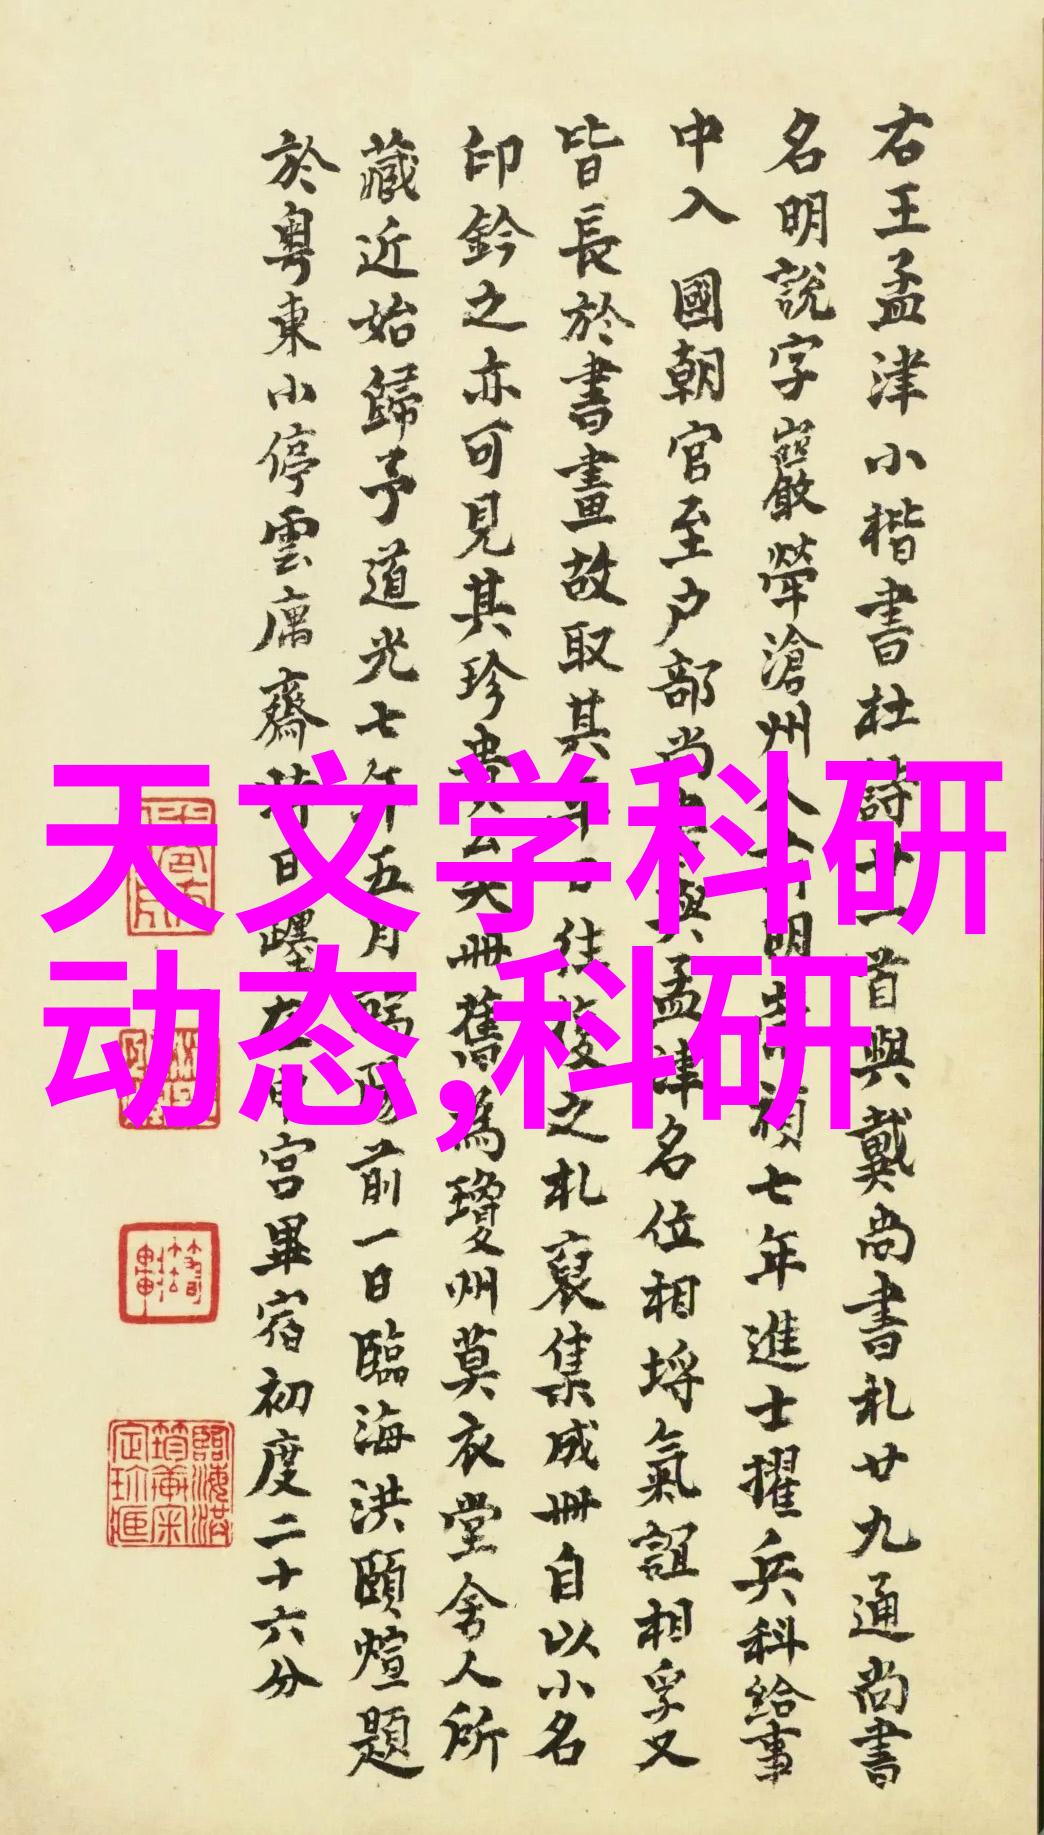 右王孟津小楷書杜詩廿一首與戴尚書札廿九通尚書
名明說字巖犖滄州人明七年進士擢兵科給事
中入國朝官至户部尚與孟津名位相埒氣誼相孚又
皆長於書畫故取其往復之札裒集成冊自以小名
印鈐之亦可見其珍貴冊舊為瓊州莫衣堂舍人所
藏近始歸予道光七年五月陽前一日臨海洪頤煊題
於粵東小停雲庽齋時日躔宮畢宿初度二十六分
天文学科研
动态,科研
臨海洪
筠軒宋
定珍